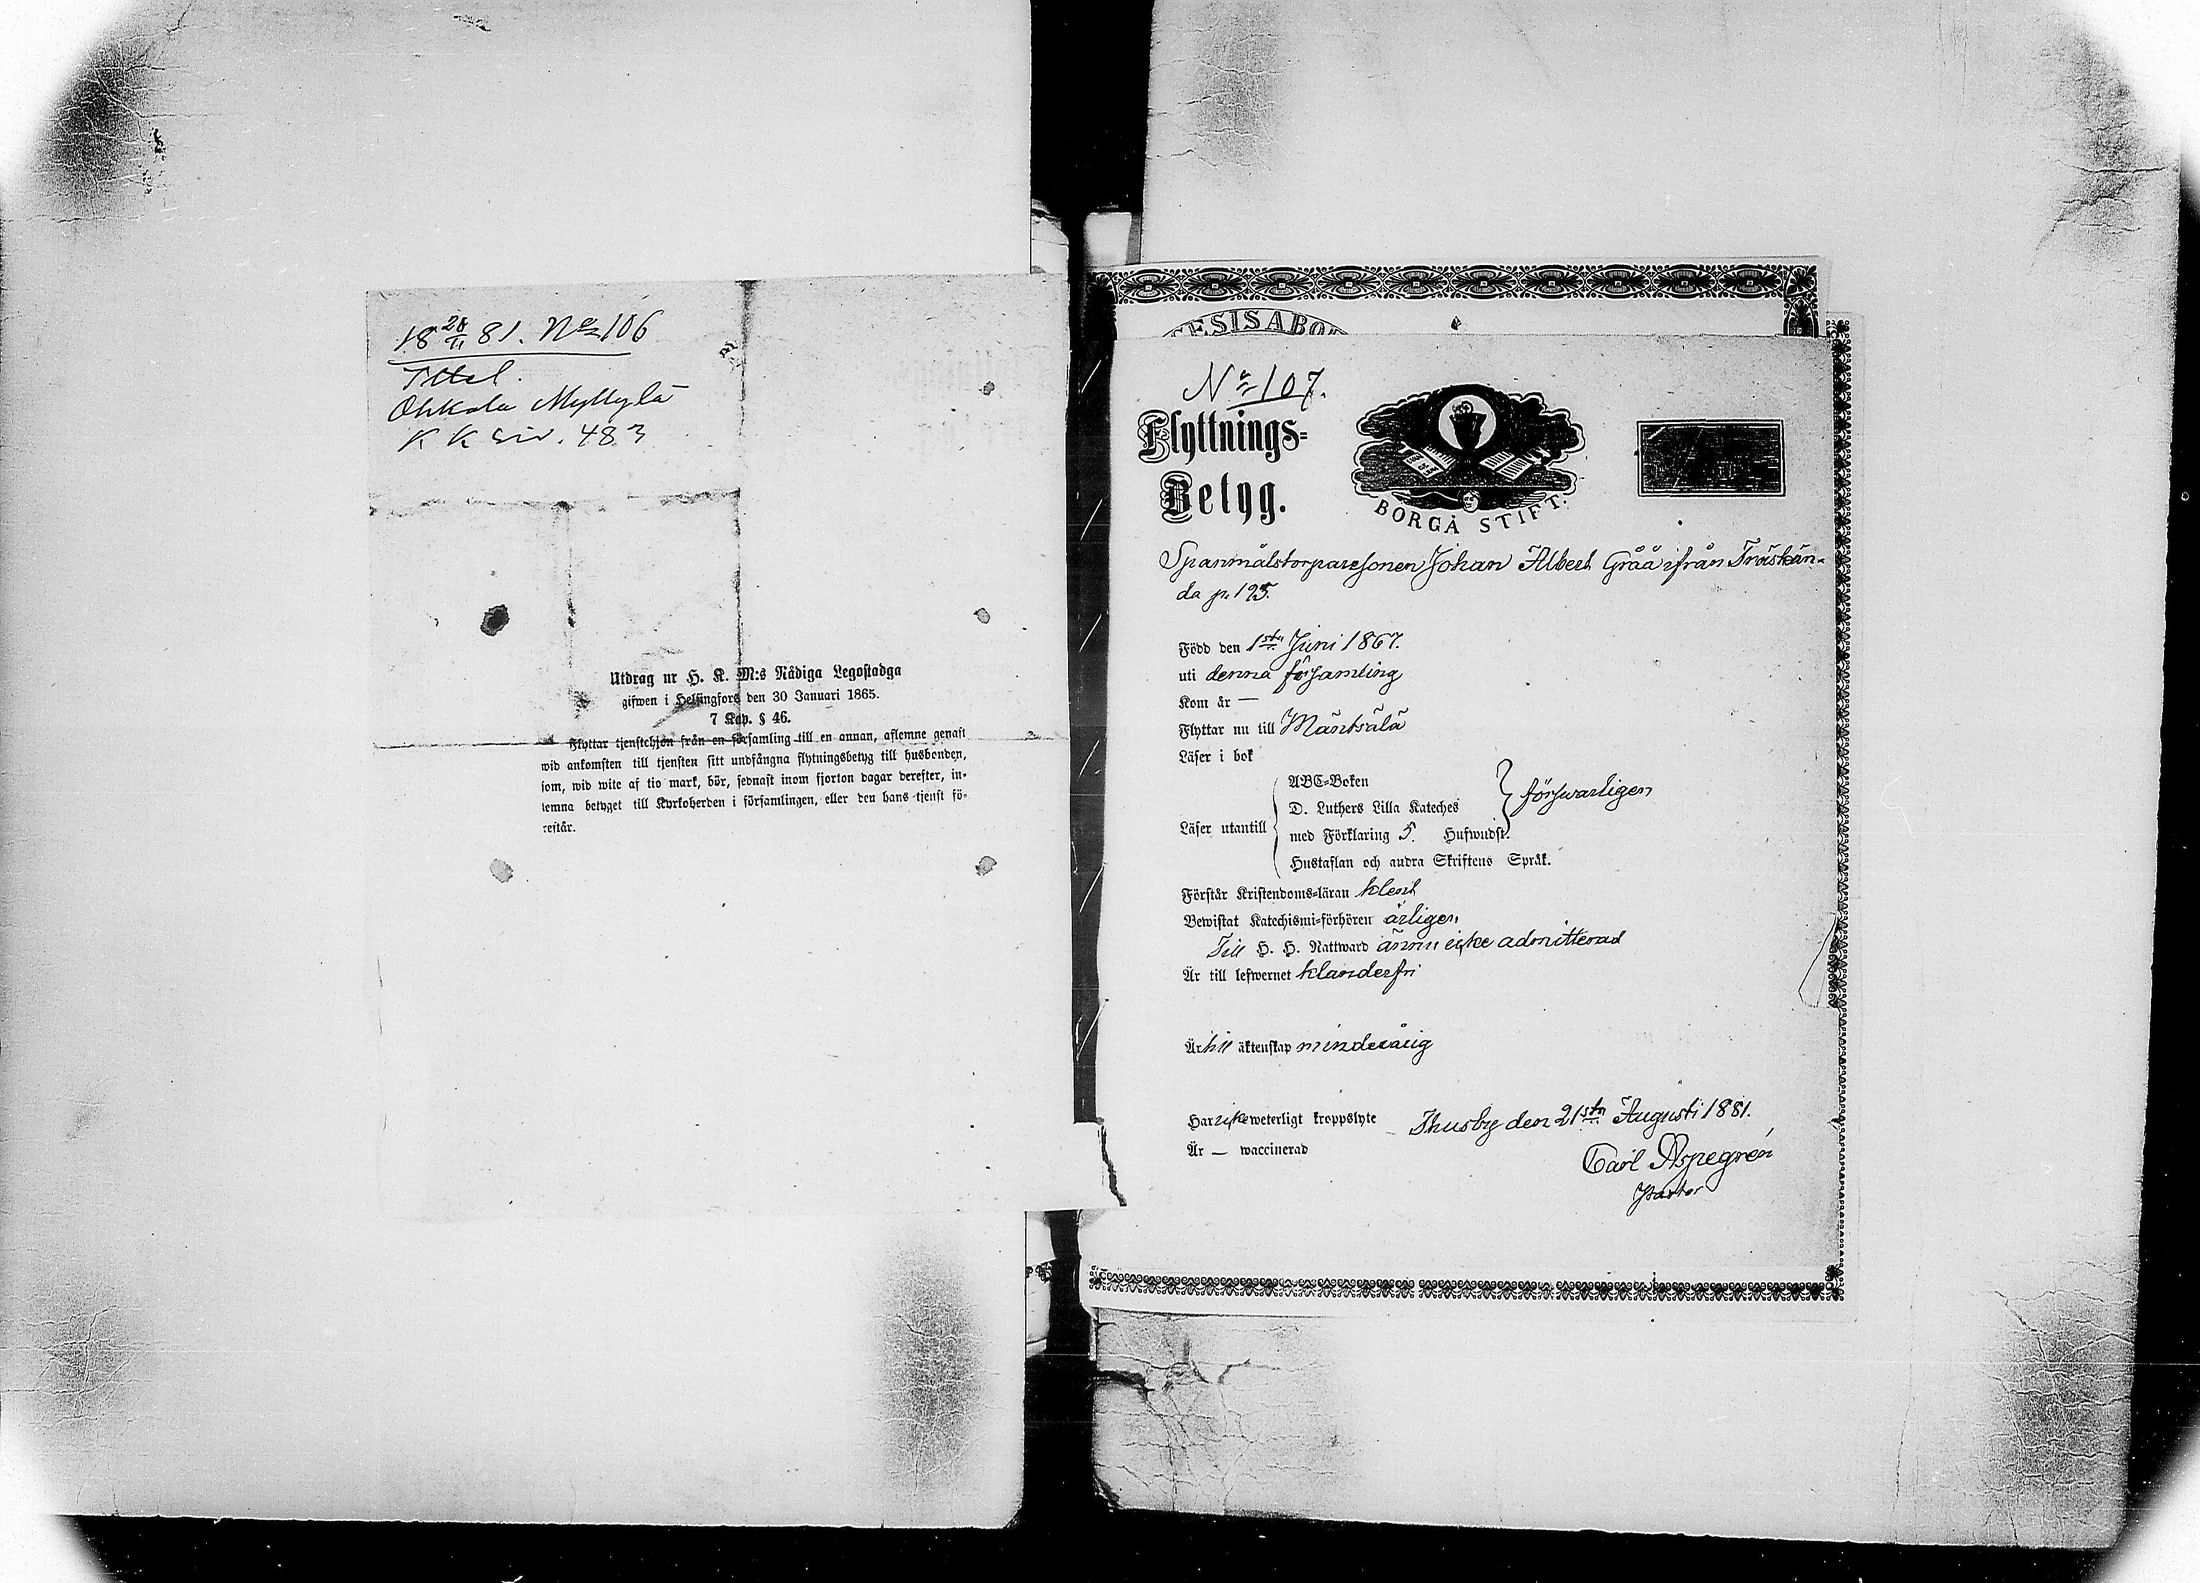 18 28/11 81. No 106
Ohkola Myllylä
K K siv. 483
Utdrag ur H. K. M:s Nådiga Legostadga
gifwen i Helsingfors den 30 Januari 1865.
7 Kap. § 46.
Flyttar tjenstehjon från en församling till en annan, aflemne genast
wid ankomsten till tjensten sitt undfångna flytningsbetyg till husbonden,
som, wid wite af tio mark, bör, sednast inom fjorton dagar derefter, in-
lemna betyget till Kyrkoherden i församlingen, eller den hans tjenst fö-
restår.
ESISABO
No 107.
Flyttnings-
Betyg.
BORGÅ STIFT.
Spanmålstorparesonen Johan Albert Gråå ifrån Träskän-
da p. 195.
Född den 1sta Juni 1867.
uti denna församling
Kom år —
Flyttar nu till Mäntsälä
Läser i bok
ABC-Boken
D. Luthers Lilla Kateches
försvarligen
Läser utantill
med Förklaring 5 Hufwudst.
Hustaflan och andra Skriftens Språk.
Förstår Kristendoms-läran klent
Bewistat Katechismi-förhören årligen
Till H. H. Nattward ännu icke admitterad
Är till lefwernet klanderfri
Är till äktenskap minderårig
Har icke weterligt kroppslyte
Thusby den 21sta Augusti 1881.
Är — waccinerad
Carl Aspegrén
Pastor